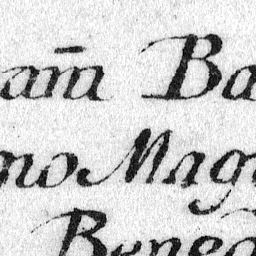 am̄ Ba
no Mag
Bened